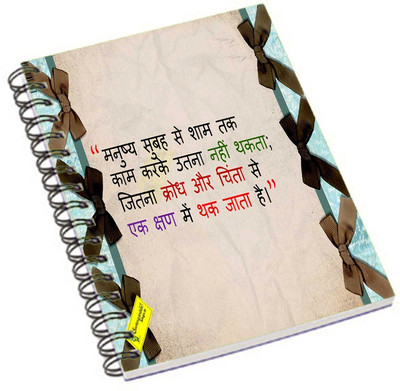 “मनुष्य सुबह से शाम तक
काम करके उतना नहीं थकता;
जितना क्रोध और चिंता से
एक क्षण में थक जाता है।”